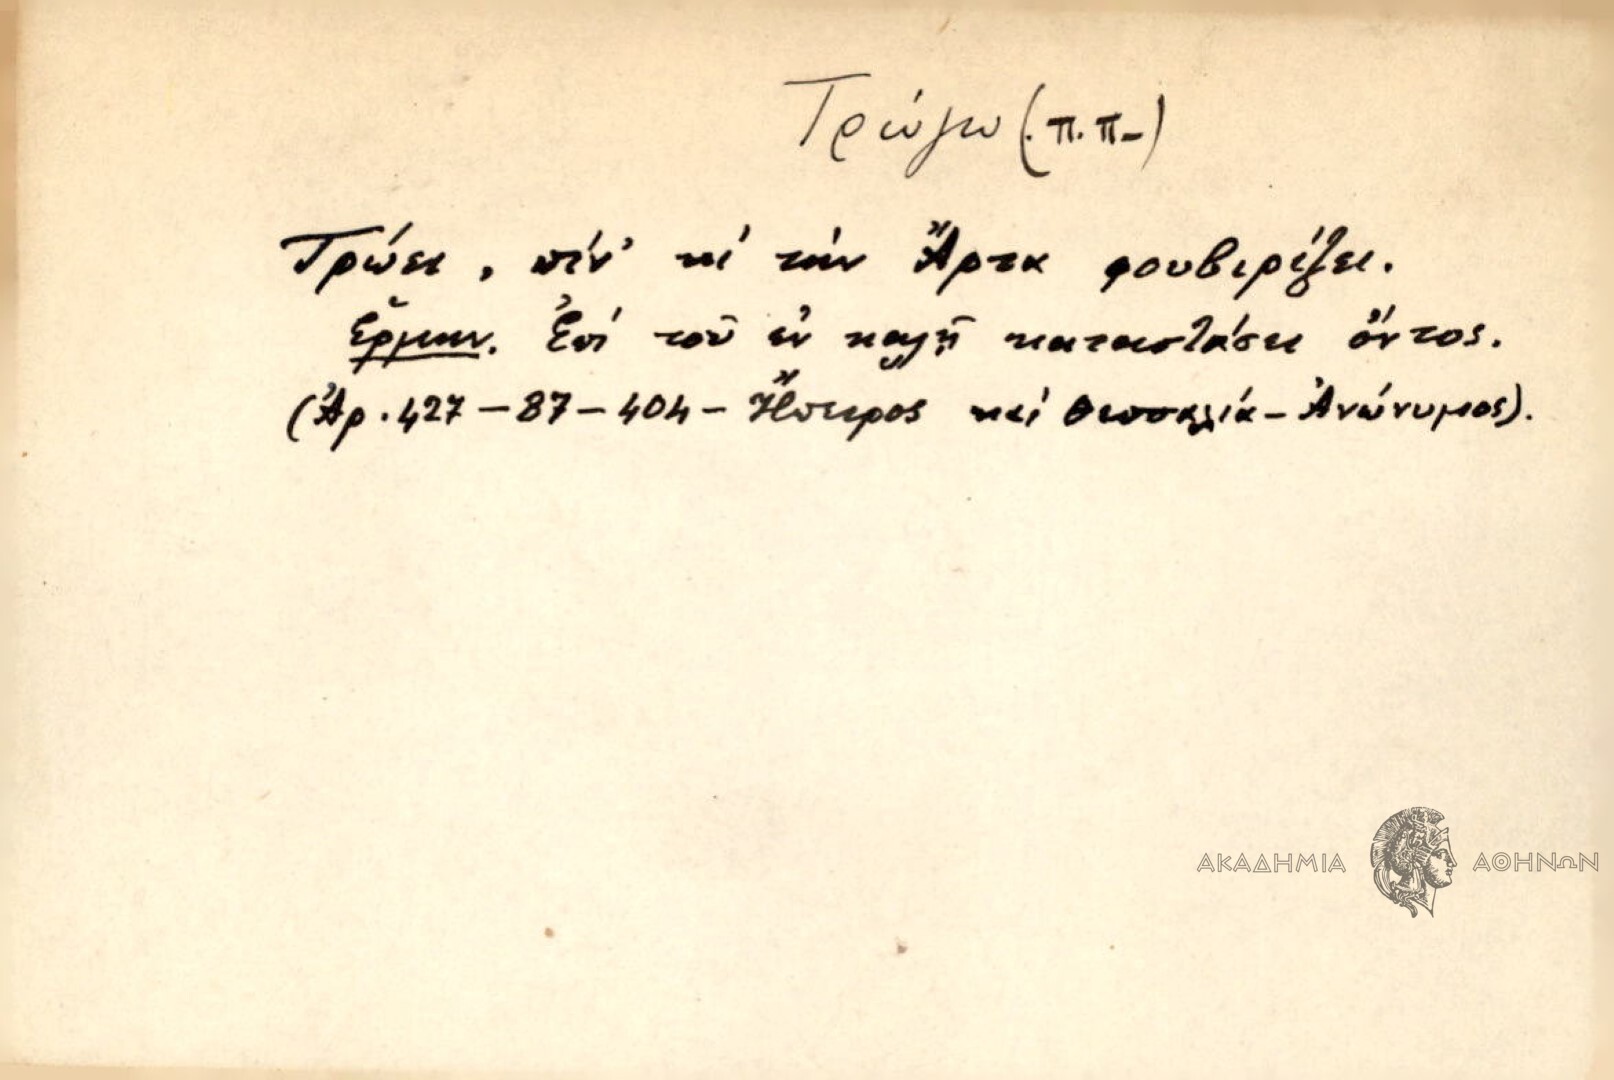 Τρώγω (π.π.)
Τρώει, πίν' κὶ τὴν Ἄρτα φουβιρίζει.
Ἑρμην. Ἐπὶ τοῦ ἐν καλῇ καταστάσει ὄντος.
(Ἀρ. 427 - 87 - 404 - Ἤπειρος καὶ Θεσσαλία - Ἀνώνυμος).
ΑΚΑΔΗΜΙΑ ΑΘΗΝΩΝ